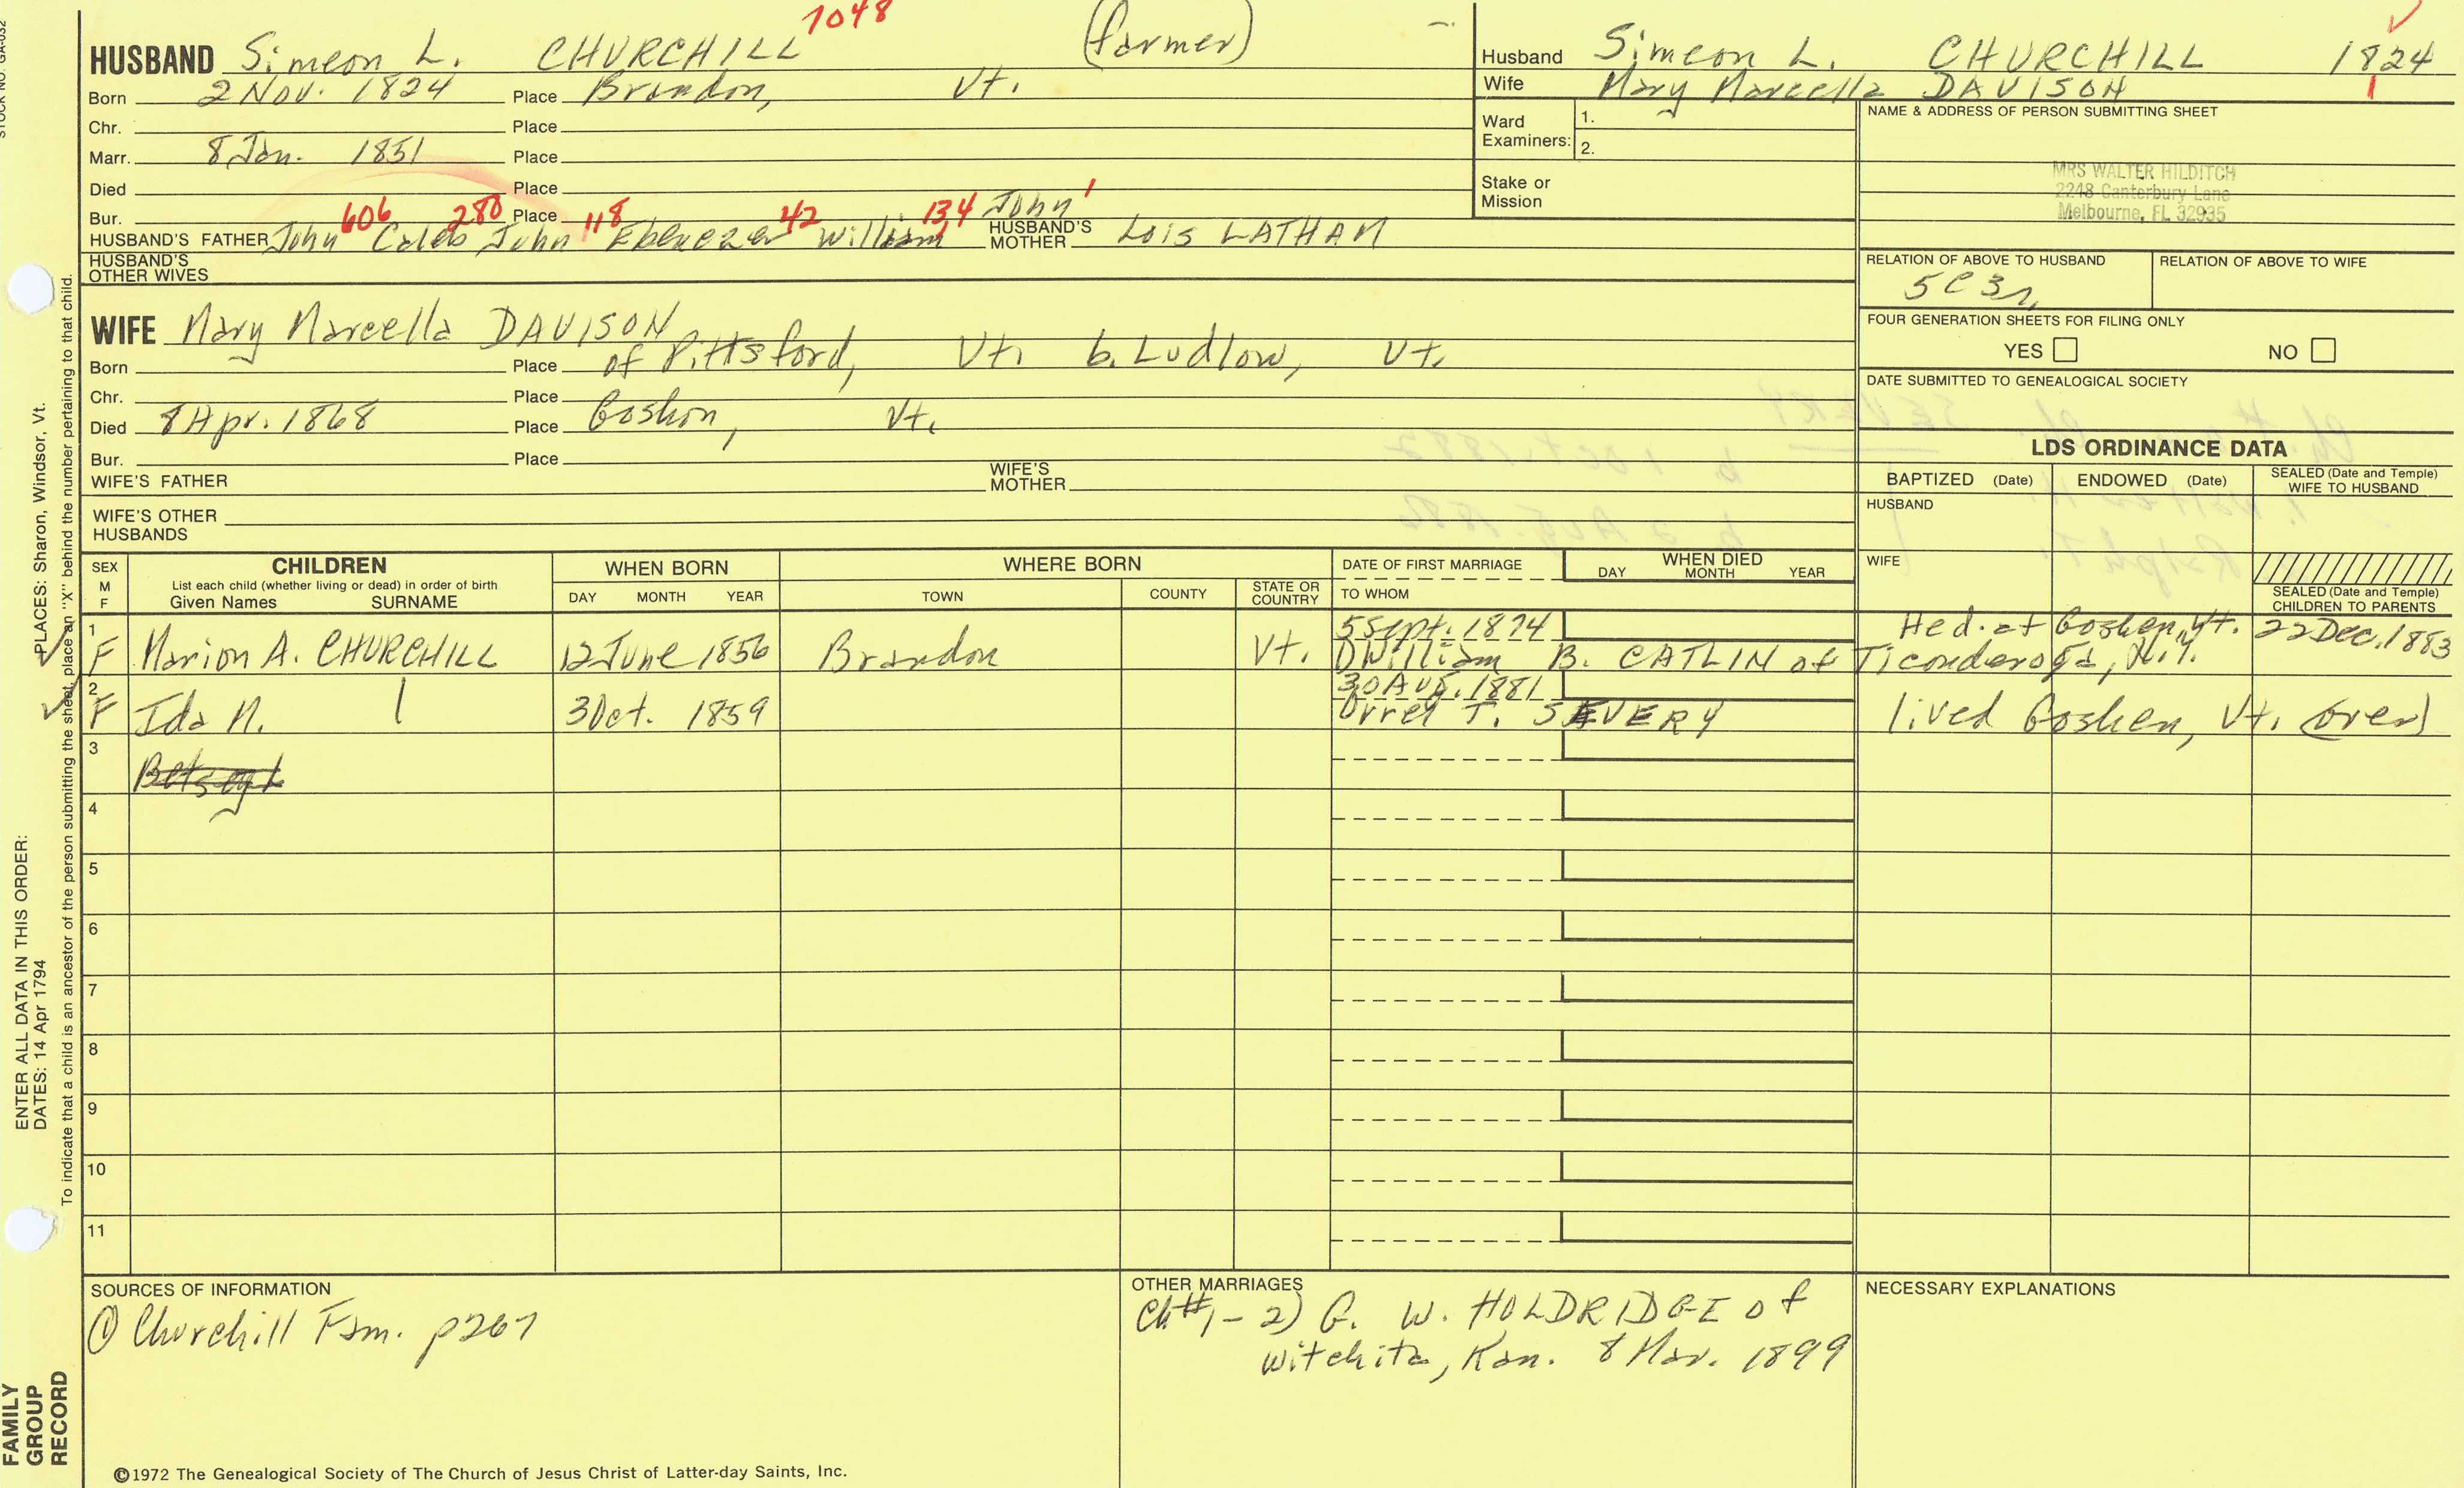 STOCK NO. GA-032
1048
HUSBAND Simeon L. CHURCHILL (farmer)
Born 2 Nov. 1824 Place Brandon, Vt.
Chr. Place
Marr. 8 Jan. 1851 Place
Died Place
Bur. Place
606 280 118 42 134 John 1
HUSBAND'S FATHER John Caleb John Ebenezer William HUSBAND'S MOTHER Lois LATHAM
HUSBAND'S OTHER WIVES
WIFE Mary Marcella DAVISON
Born Place of Pittsford, Vt. b. Ludlow, Vt.
Chr. Place
Died 8 Apr. 1868 Place Goshen, Vt.
Bur. Place
WIFE'S FATHER WIFE'S MOTHER
WIFE'S OTHER HUSBANDS
Husband Simeon L. CHURCHILL 1824
Wife Mary Marcella DAVISON 1
Ward Examiners: 1.
2.
Stake or Mission
NAME & ADDRESS OF PERSON SUBMITTING SHEET
MRS WALTER HILDITCH
2248 Canterbury Lane
Melbourne, FL 32935
RELATION OF ABOVE TO HUSBAND RELATION OF ABOVE TO WIFE
5C3r
FOUR GENERATION SHEETS FOR FILING ONLY
YES NO
DATE SUBMITTED TO GENEALOGICAL SOCIETY
LDS ORDINANCE DATA
BAPTIZED (Date) ENDOWED (Date) SEALED (Date and Temple) WIFE TO HUSBAND
HUSBAND
WIFE
SEALED (Date and Temple) CHILDREN TO PARENTS
SEX M F
CHILDREN
List each child (whether living or dead) in order of birth
Given Names SURNAME
WHEN BORN
DAY MONTH YEAR
WHERE BORN
TOWN COUNTY STATE OR COUNTRY
DATE OF FIRST MARRIAGE
TO WHOM
WHEN DIED
DAY MONTH YEAR
1 F Marion A. CHURCHILL 12 June 1856 Brandon Vt. 5 Sept. 1874 He d. at Goshen, Vt. 22 Dec. 1883
1) William B. CATLIN of Ticonderoga, N.Y.
2 F Ida M. 3 Oct. 1859 30 Aug. 1881
Orrel T. SEVERY lived Goshen, Vt. (over)
3
4
5
6
7
8
9
10
11
SOURCES OF INFORMATION
① Churchill Fam. p267
OTHER MARRIAGES
Ch#1 - 2) G. W. HOLDRIDGE of
Witchita, Kan. 8 Mar. 1899
NECESSARY EXPLANATIONS
©1972 The Genealogical Society of The Church of Jesus Christ of Latter-day Saints, Inc.
FAMILY GROUP RECORD
ENTER ALL DATA IN THIS ORDER:
DATES: 14 Apr 1794
PLACES: Sharon, Windsor, Vt.
To indicate that a child is an ancestor of the person submitting the sheet, place an "X" behind the number pertaining to that child.